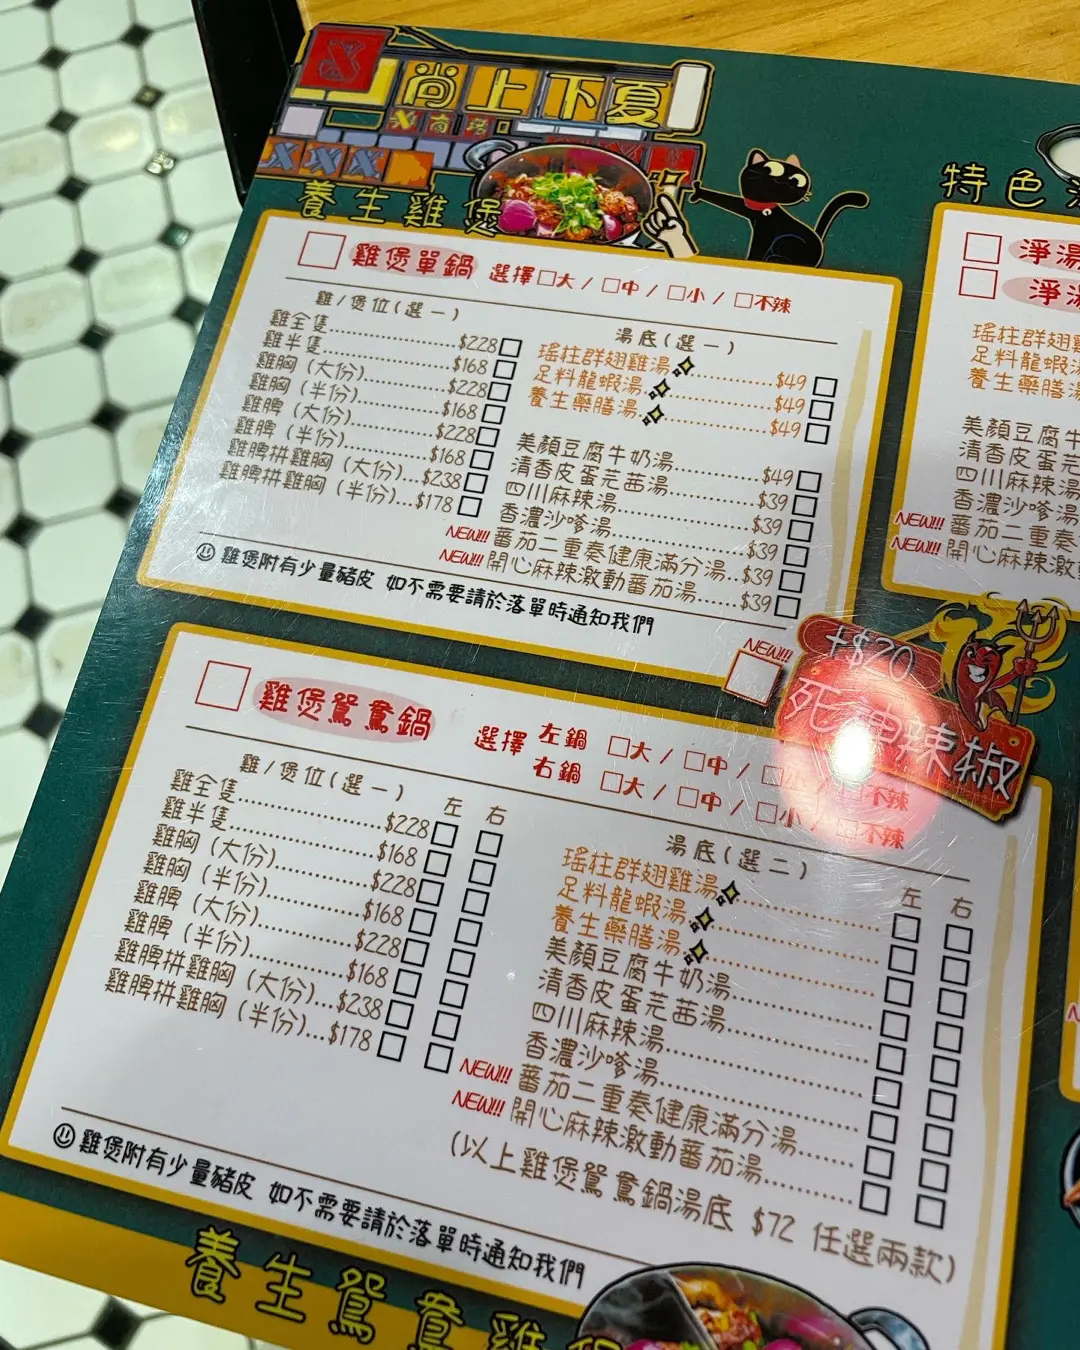 尚上下夏
養生雞煲
雞煲單鍋 選擇 □大 / □中 / □小 / □不辣
雞/煲位(選一)
雞全隻..................$228
雞半隻..................$168
雞胸 (大份)............$228
雞胸 (半份)............$168
雞髀 (大份)............$228
雞髀 (半份)............$168
雞髀拼雞胸 (大份)...$238
雞髀拼雞胸 (半份)...$178
湯底(選一)
瑤柱群翅雞湯............$49
足料龍蝦湯...............$49
養生藥膳湯...............$49
美顏豆腐牛奶湯.........$49
清香皮蛋芫茜湯.........$39
四川麻辣湯...............$39
香濃沙嗲湯...............$39
NEW!!! 蕃茄二重奏健康滿分湯..$39
NEW!!! 開心麻辣激動蕃茄湯......$39
雞煲附有少量豬皮 如不需要請於落單時通知我們
NEW!!!
+$20
死神辣椒
雞煲鴛鴦鍋 選擇
左鍋 □大 / □中 / □小 / □不辣
右鍋 □大 / □中 / □小 / □不辣
雞/煲位(選一) 左 右
雞全隻..................$228
雞半隻..................$168
雞胸 (大份)............$228
雞胸 (半份)............$168
雞髀 (大份)............$228
雞髀 (半份)............$168
雞髀拼雞胸 (大份)...$238
雞髀拼雞胸 (半份)...$178
湯底(選二) 左 右
瑤柱群翅雞湯
足料龍蝦湯
養生藥膳湯
美顏豆腐牛奶湯
清香皮蛋芫茜湯
四川麻辣湯
香濃沙嗲湯
NEW!!! 蕃茄二重奏健康滿分湯
NEW!!! 開心麻辣激動蕃茄湯
(以上雞煲鴛鴦鍋湯底 $72 任選兩款)
雞煲附有少量豬皮 如不需要請於落單時通知我們
養生鴛鴦雞煲
特色
淨湯
淨湯
瑤柱群翅雞
足料龍蝦湯
養生藥膳湯
美顏豆腐牛
清香皮蛋芫
四川麻辣湯
香濃沙嗲湯
NEW!!! 蕃茄二重奏
NEW!!! 開心麻辣激